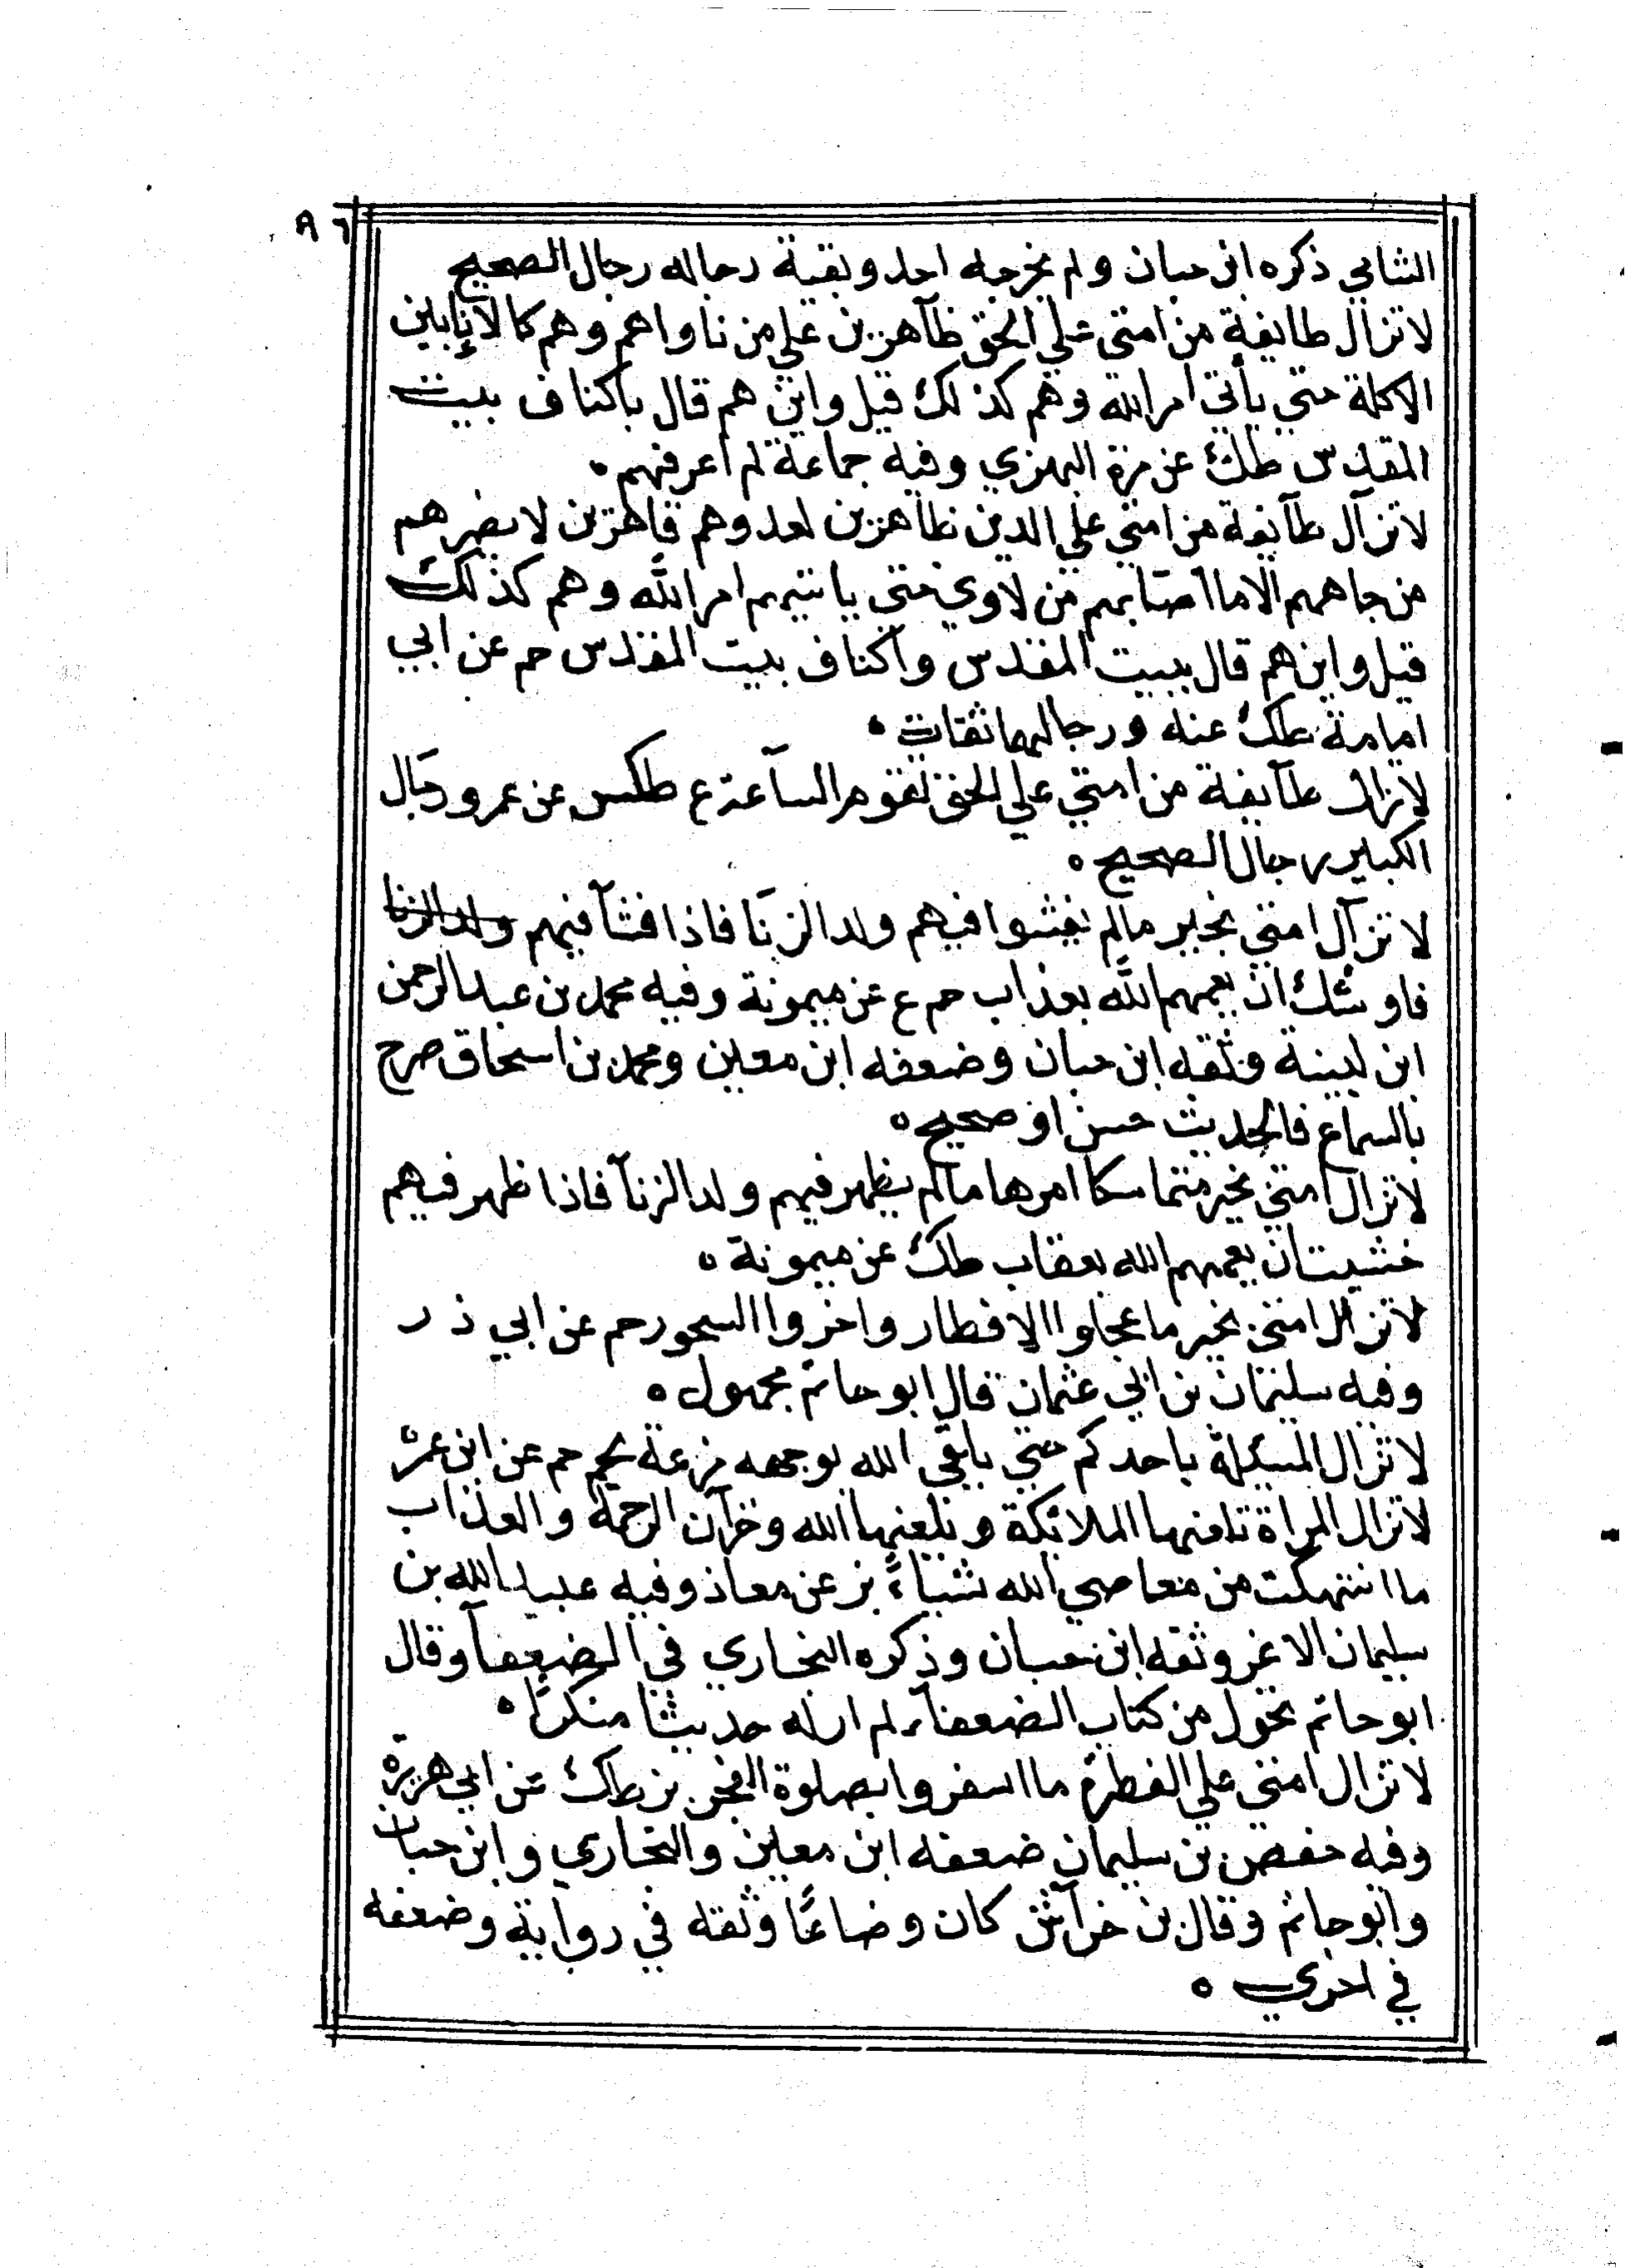 ٨٦
الشامي ذكره ابن حبان ولم يخرجه احد وبقية رجاله رجال الصحيح
لا تزال طايفة من امتي علي الحق ظآهرين علي من ناواهم وهم كالانا بين
الاكلة حتي يأتي امر الله وهم كذلك قيل واين هم قال باكناف بيت
المقدس طك عن مرة البهزي وفيه جماعة لم اعرفهم ه
لا تزال طآيفة من امتي علي الدين ظاهرين لعدوهم قاهرين لا يضرهم
من جاهمهم الا ما اصابهم من لاوي حتي ياتيهم امر الله وهم كذلك
قيل واين هم قال ببيت المقدس واكناف بيت المقدس حم عن ابي
امامة طك عنه ورجالهما ثقات ه
لا تزال طآيفة من امتي علي الحق لتقوم السآعة ع طكس عن عمر ورجال
الكبير رجال الصحيح ه
لا تزآل امتي بخير مالم يفشوا فيهم ولد الزنا فاذا فشآ فيهم ولد الزنا
فاوشك ان يعمهم الله بعذاب حم ع عن ميمونة وفيه محمد بن عبد الرحمن
ابن لبينة وثقه ابن حبان وضعفه ابن معين ومحمد بن اسحاق صرح
بالسماع فالحديث حسن او صحيح ه
لا تزال امتي بخير متماسكا امرها مآلم يظهر فيهم ولد الزنآ فاذا ظهر فيهم
خشيت ان يعمهم الله بعقاب طك عن ميمونة ه
لا تزال امتي بخير ما عجلوا الافطار واخروا السحور حم عن ابي ذر
وفيه سليمان بن ابي عثمان قال ابو حاتم مجهول ه
لا تزال المسئلة باحدكم حتي يلقي الله بوجهه مزعة لحم حم عن ابن عمر ه
لا تزال المراة تلعنها الملائكة وتلعنها الله وخزآن الرحمة والعذاب
ما انتهكت من معاصي الله شياء بز عن معاذ وفيه عبيد الله بن
سليمان الاغر وثقه ابن حبان وذكره البخاري في الضعفآ وقال
ابو حاتم يحول من كتاب الضعفآء لم ار له حديثا منكرا ه
لا تزال امتي علي الفطرة ما اسفروا بصلوة الفجر بز طك عن ابي هريرة
وفيه حفص بن سليمان ضعفه ابن معين والبخاري وابن حبان
وابو حاتم وقال بن خرآش كان وضاعا وثقه في رواية وضعفه
في اخري ه